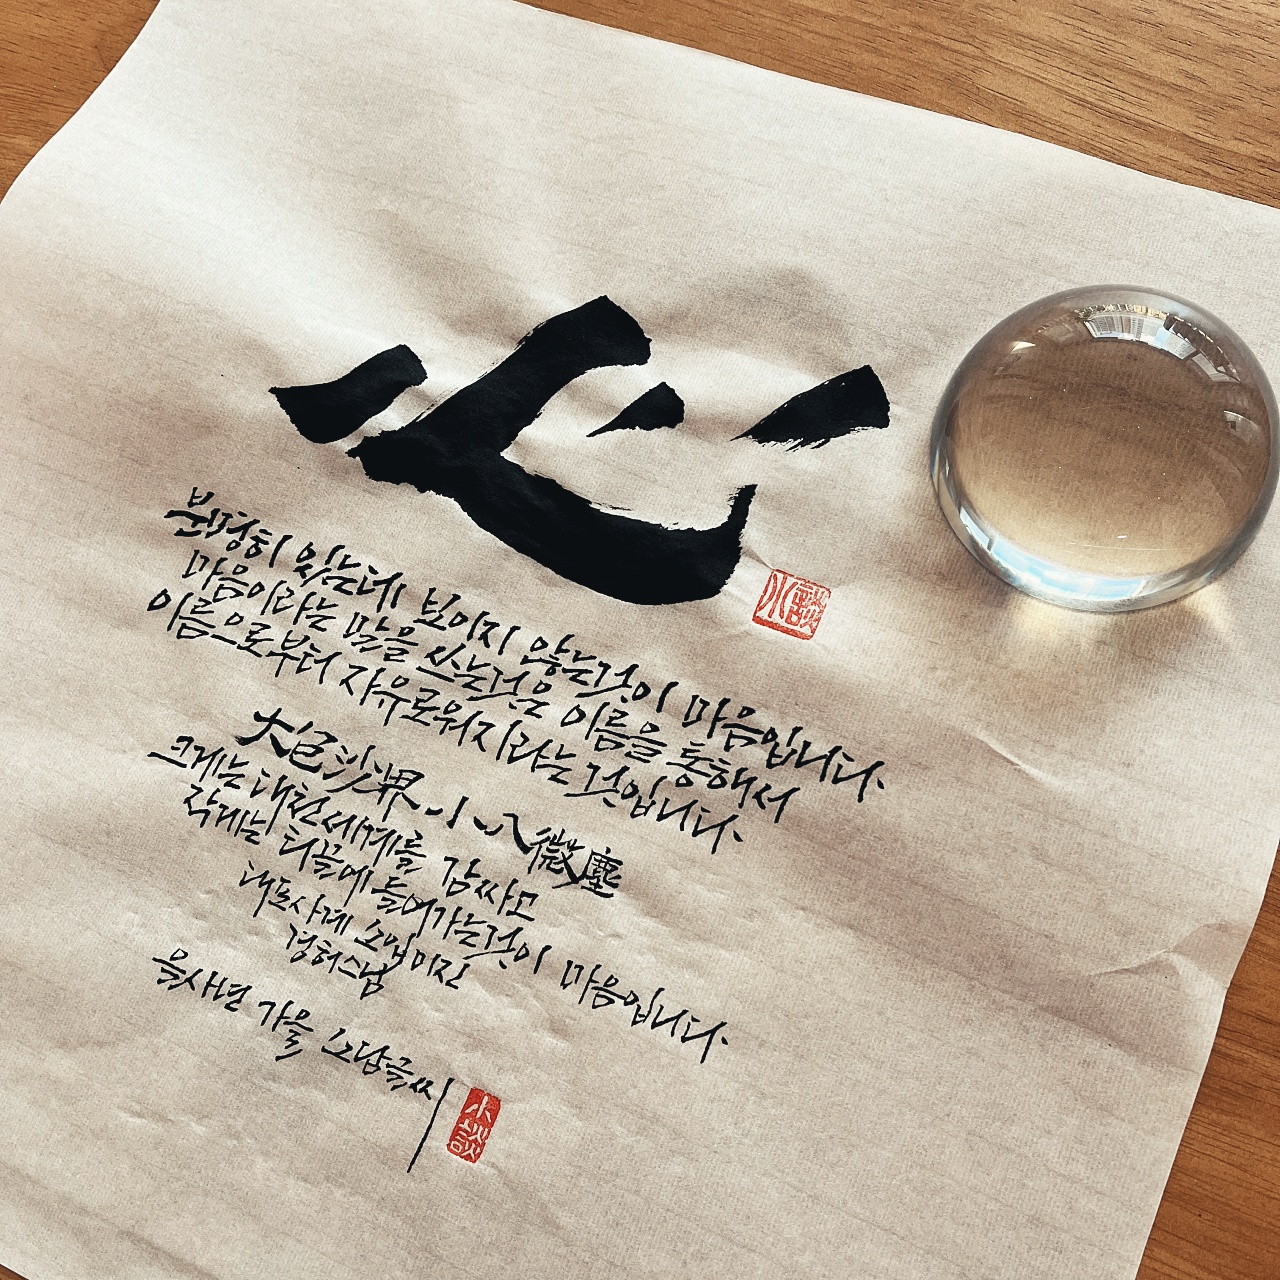 心
小談
분명히 있는데 보이지 않는것이 마음입니다.
마음이라는 말을 쓰는것은 이름을 통해서
이름으로부터 자유로워지라는 것입니다.
大包沙界 小入微塵
크게는 대천세계를 감싸고
작게는 티끌에 들어가는것이 마음입니다.
대포사계 소입미진
경허스님
을사년 가을 소담글씨
小談